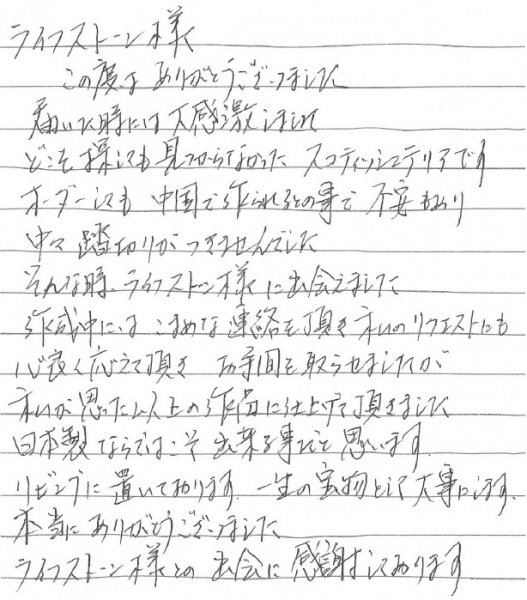 ライフストーン様
この度は ありがとうございました
届いた時には 大感激しました
どこを探しても 見つからなかった スコティッシュテリアです
オーダーしても 中国で作られるとの事で 不安もあり
中々 踏切りが つきませんでした
そんな時、ライフストーン様に出会えました
作成中には こまめな連絡を頂き 私のリクエストにも
心良く応えて頂き お手間を取らせましたが
私が思った以上の作品に仕上げて頂きました
日本製ならではこそ 出来る事だと思います。
リビングに置いております。一生の宝物として大事にします。
本当にありがとうございました
ライフストーン様との出会に感謝しております。